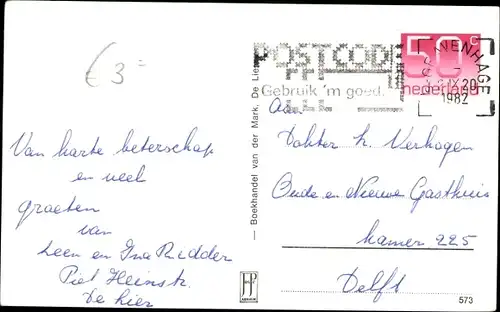 € 3=
Van harte beterschap
en veel
groeten
van
Leen en Ina Ridder
Piet Heinstr.
De Lier
— Boekhandel van der Mark, De Lier
POSTCODE
Gebruik 'm goed.
50c
nederland
'S-GRAVENHAGE
IX.20
1982
Aan
Dokter h. Verhagen
Oude en Nieuwe Gasthuis
kamer 225
Delft
573